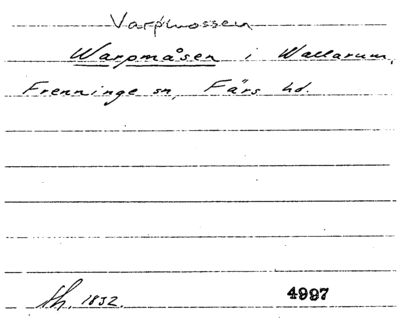 Varpmossen
Warpmåsen i Wallarum,
Frenninge sn, Färs hd.
Sk. 1832. 4997